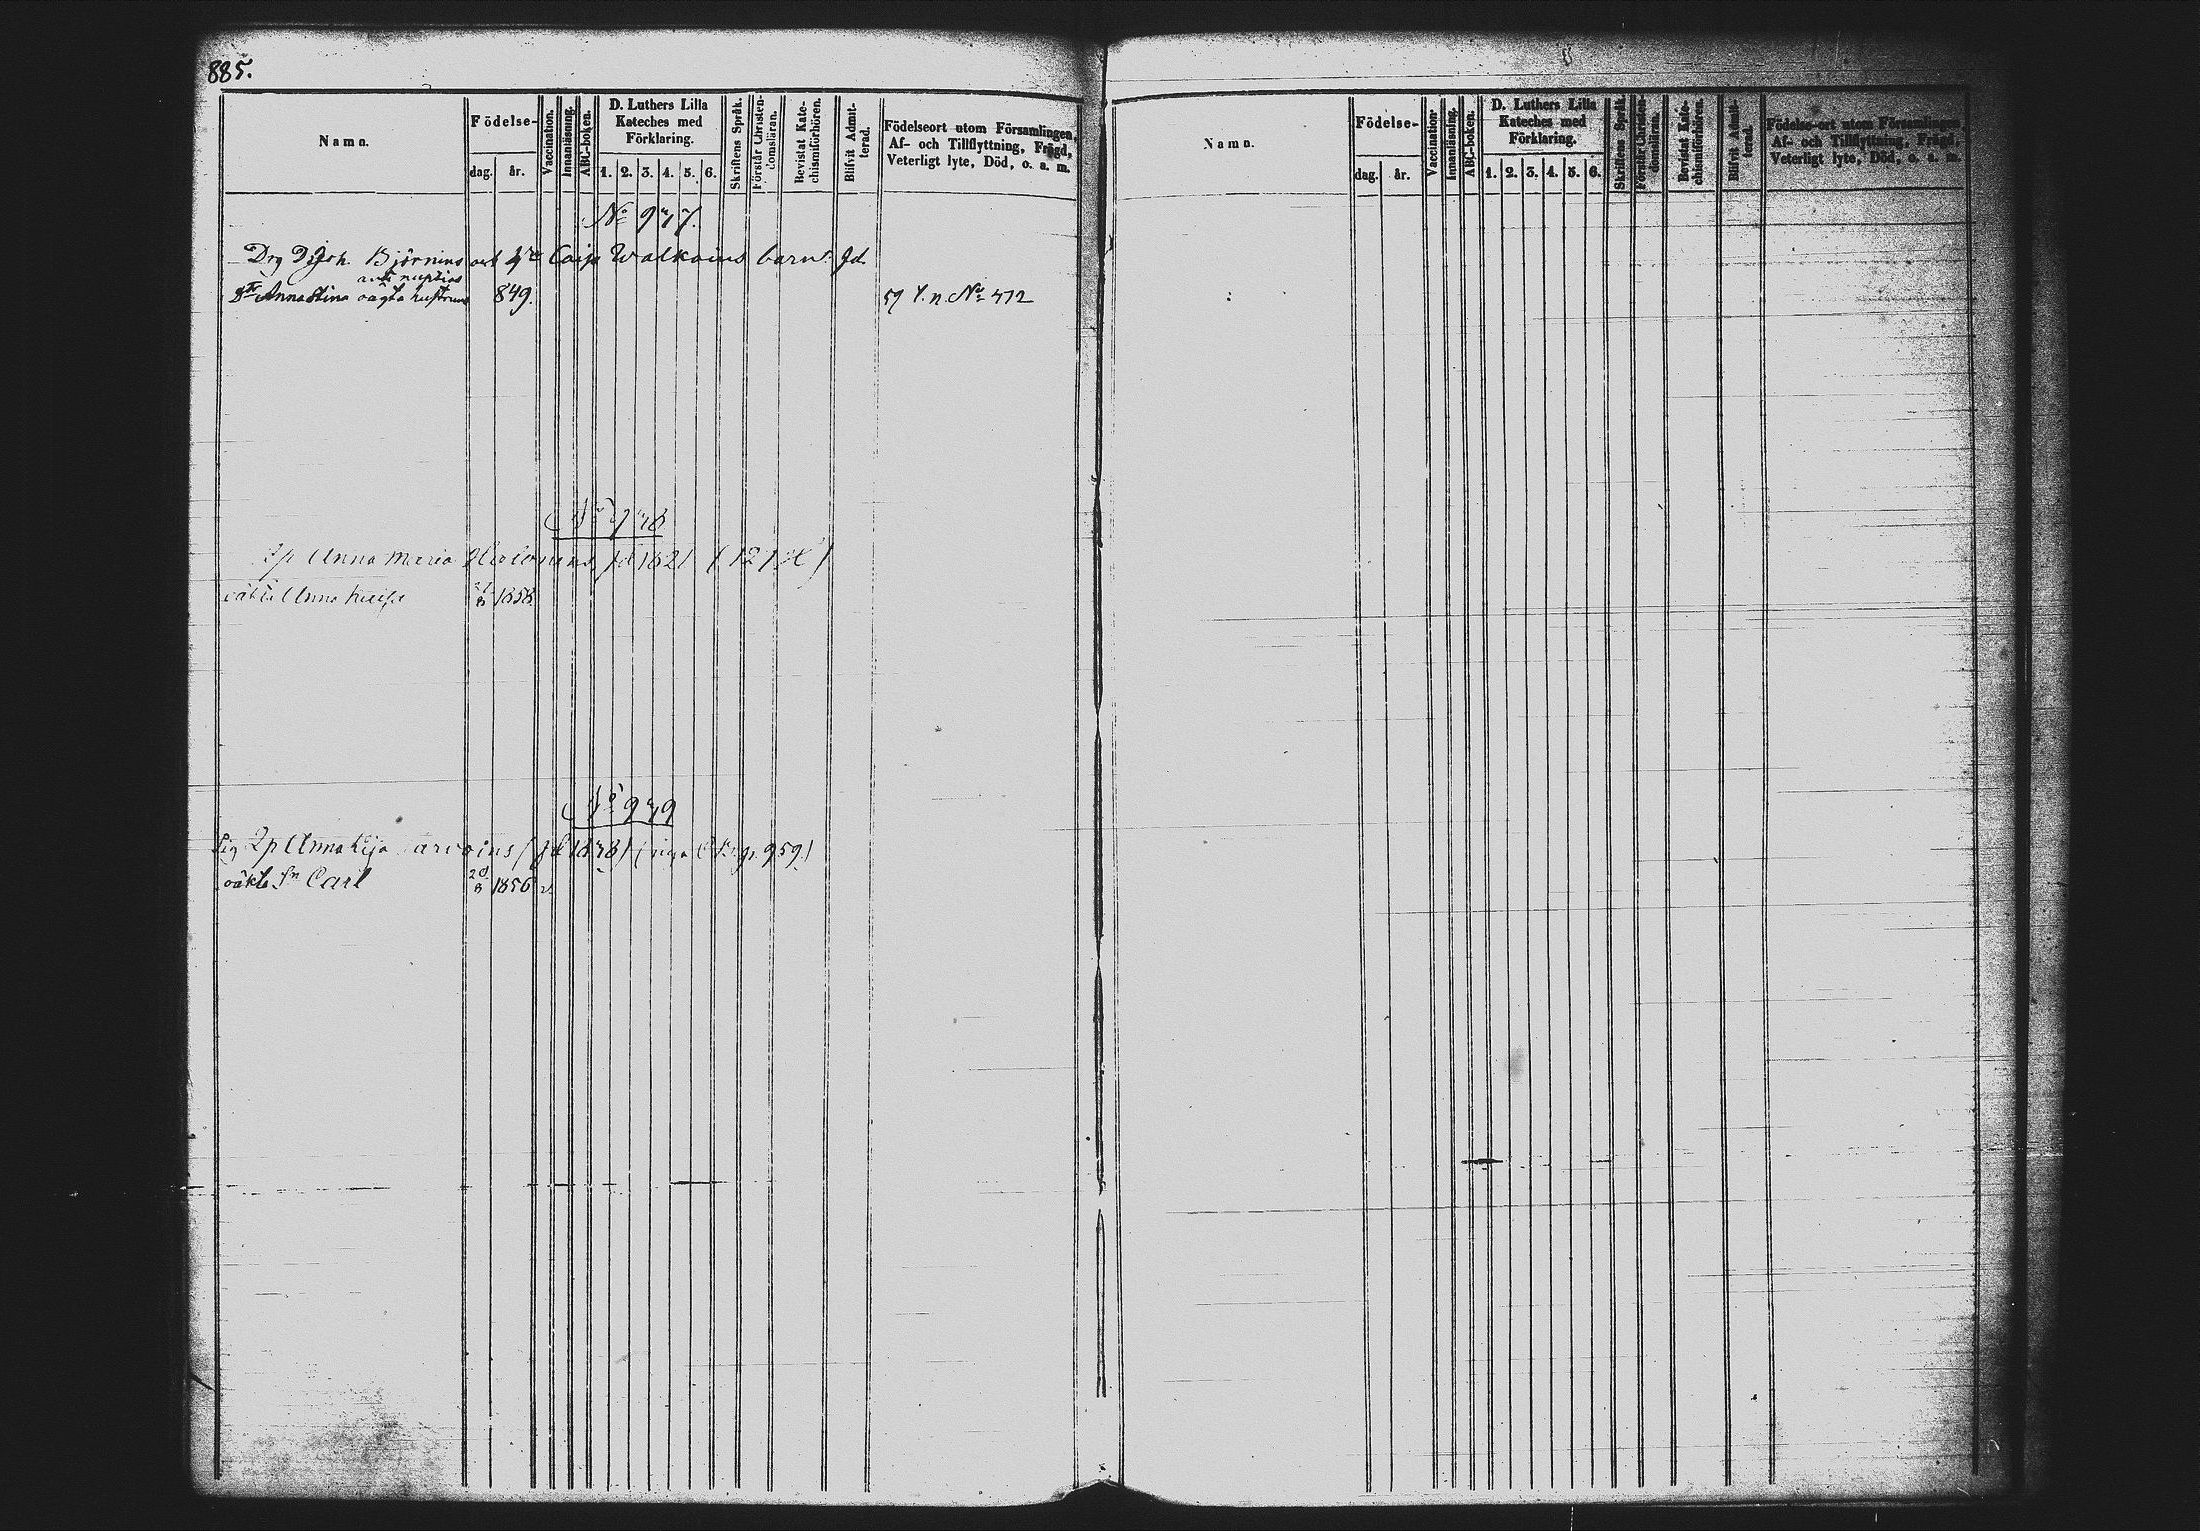 885.
Namn.
Födelse-
dag. år.
Vaccination.
Innanläsning.
ABC-boken.
D. Luthers Lilla
Kateches med
Förklaring.
1. 2. 3. 4. 5. 6.
Skriftens Språk.
Förstår Christen-
domsläran.
Bevistat Kate-
chismiförhören.
Blifvit Admit-
terad.
Födelseort utom Församlingen,
Af- och Tillflyttning, Frägd,
Veterligt lyte, Död, o. a. m.
No 947.
Drg Joh. Björnins och Caisa Walkoins barn:
Anna Stina oägta 849. 57 f. n. No 412
No 948
Anna Maria 1821
oäkta Anna 1858
No 949
Anna Lisa 959.)
oäkta sn Carl 1856
Namn.
Födelse-
dag. år.
Vaccination.
Innanläsning.
ABC-boken.
D. Luthers Lilla
Kateches med
Förklaring.
1. 2. 3. 4. 5. 6.
Skriftens Språk.
Förstår Christen-
domsläran.
Bevistat Kate-
chismiförhören.
Blifvit Admit-
terad.
Födelse-ort utom Församlingen,
Af- och Tillflyttning, Frägd,
Veterligt lyte, Död, o. a. m.